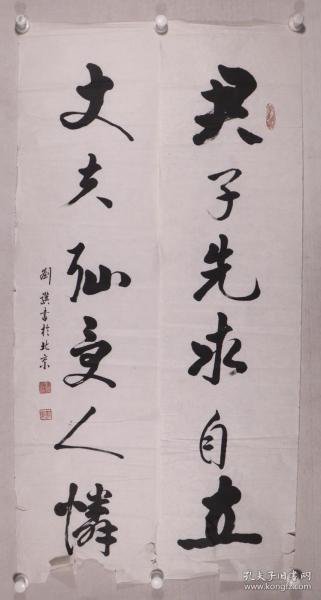 君子先求自立
丈夫耻受人憐
劉選書於北京
孔夫子旧书网
www.kongfz.com